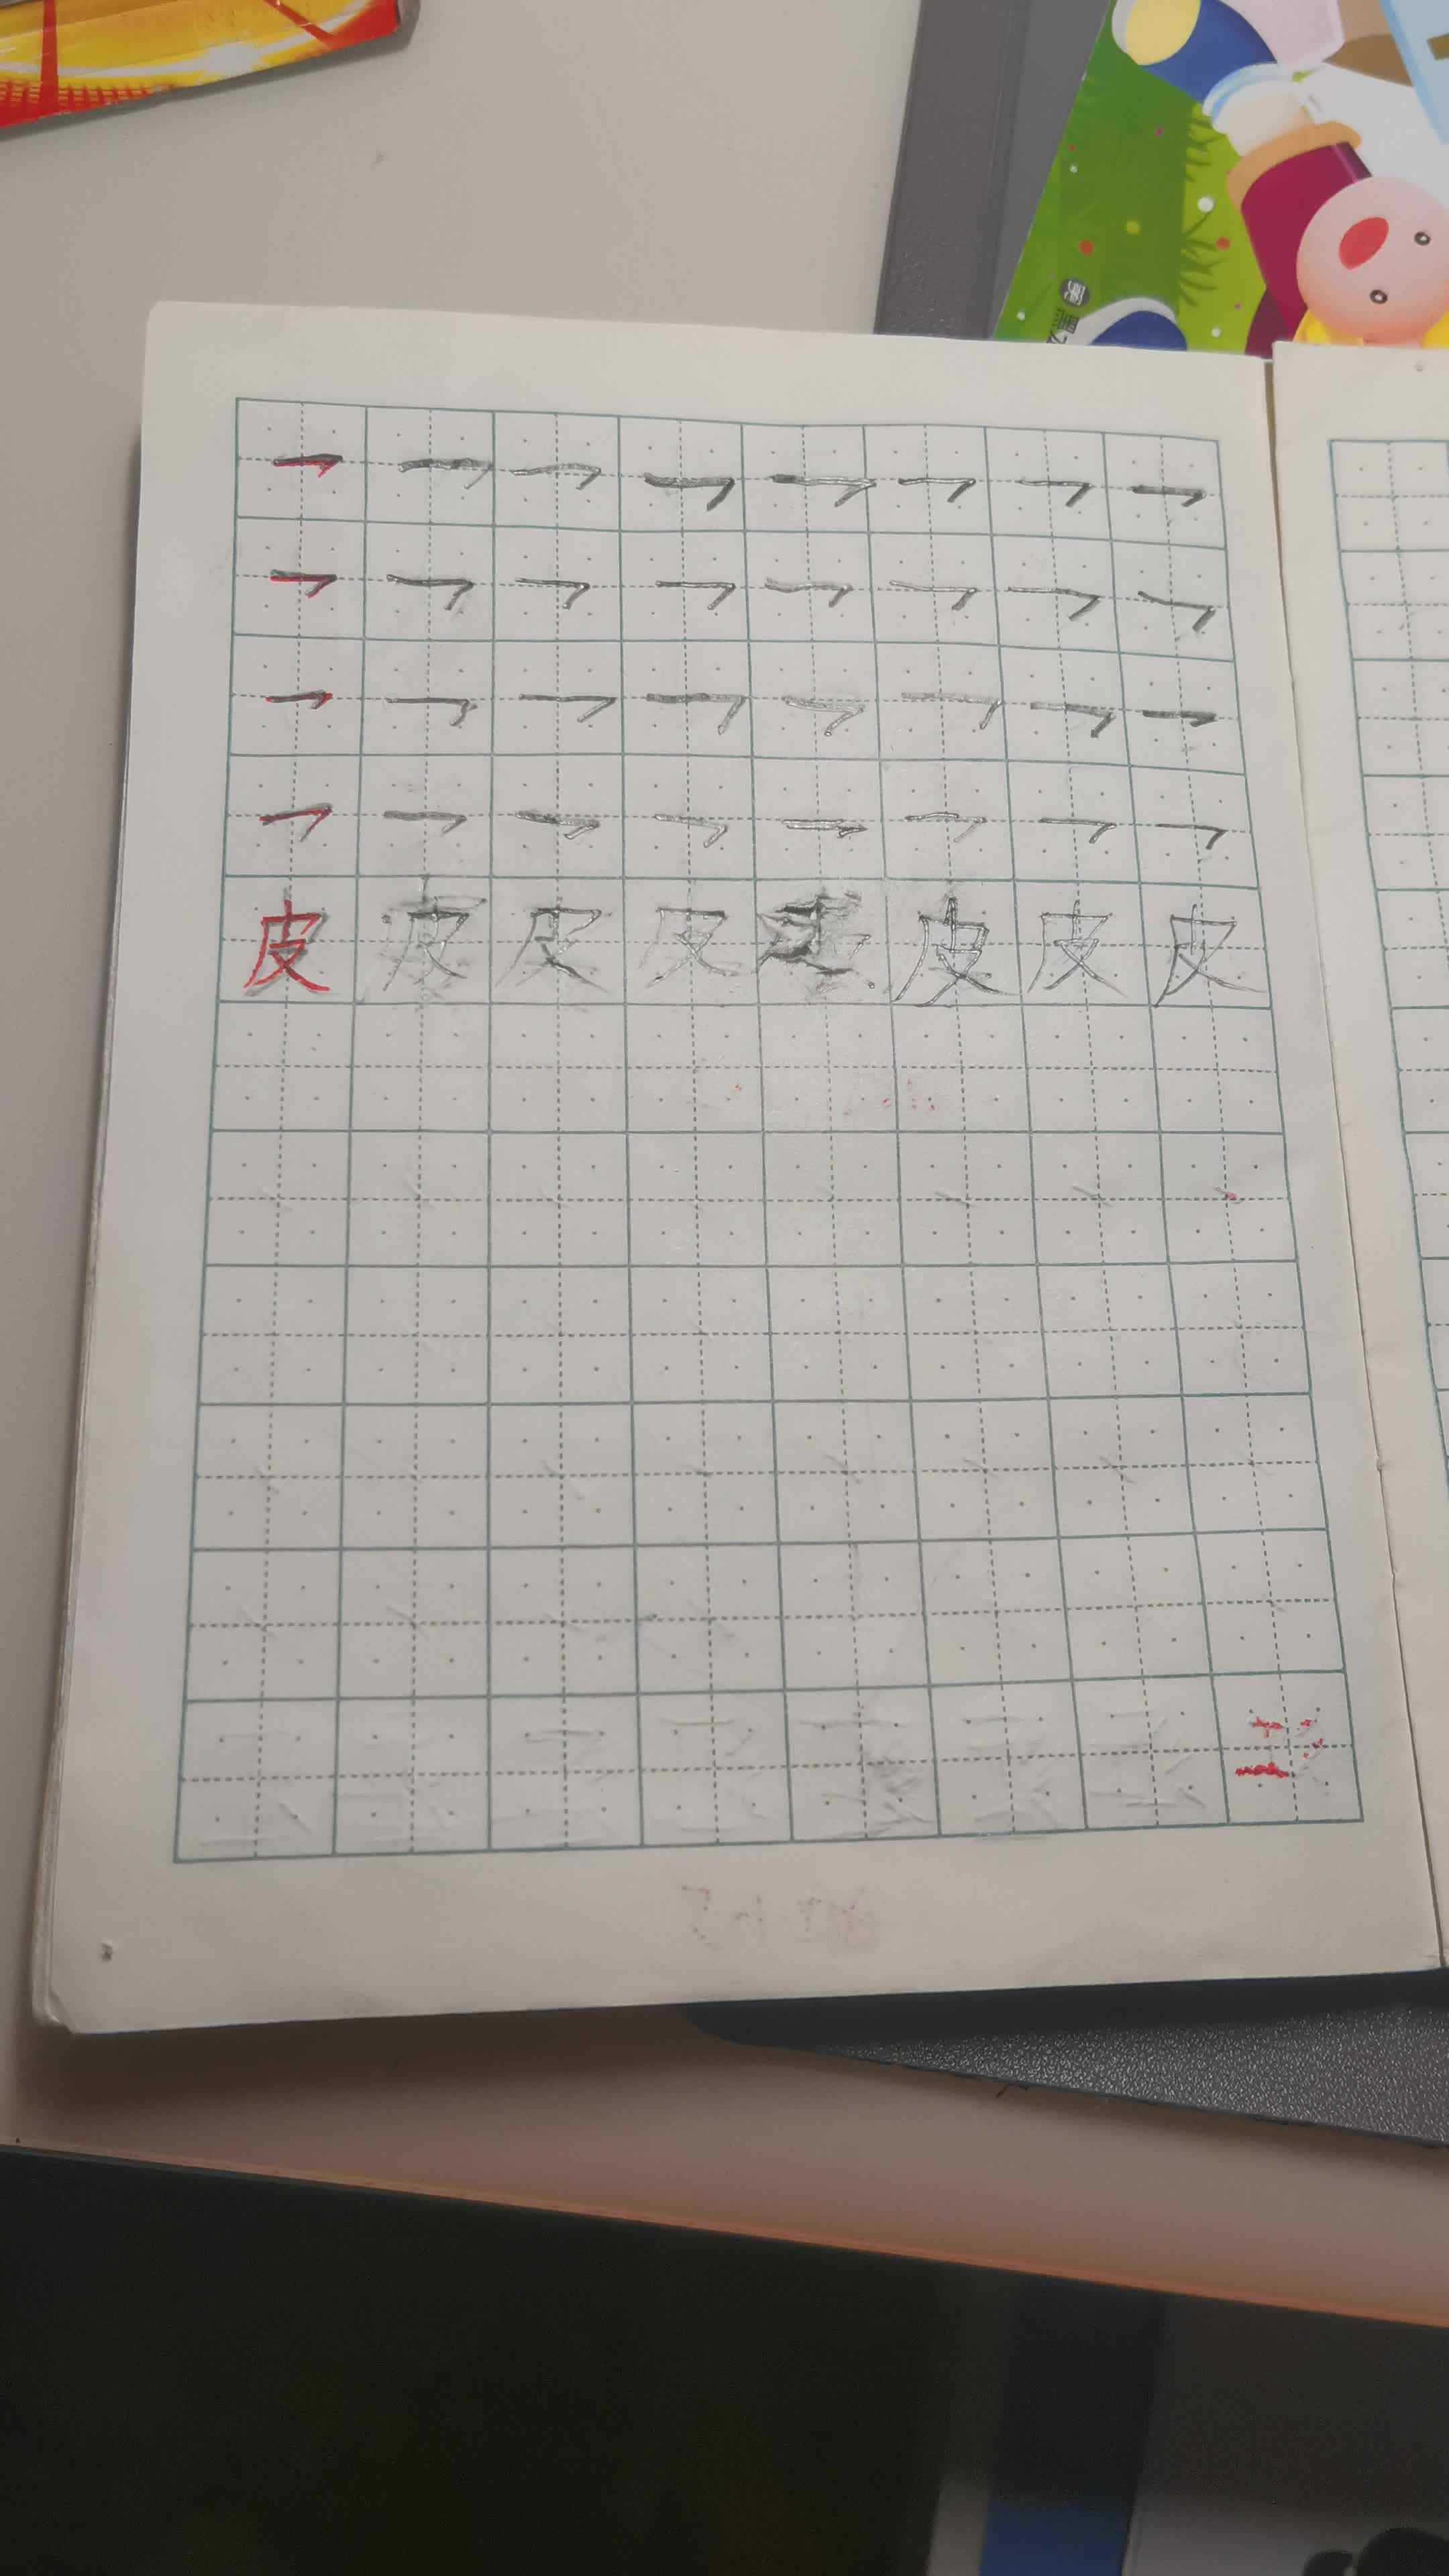 ㇇ ㇇ ㇇ ㇇ ㇇ ㇇ ㇇ ㇇
㇇ ㇇ ㇇ ㇇ ㇇ ㇇ ㇇ ㇇
㇇ ㇇ ㇇ ㇇ ㇇ ㇇ ㇇ ㇇
㇇ ㇇ ㇇ ㇇ ㇇ ㇇ ㇇ ㇇
皮 皮 皮 皮 皮 皮 皮